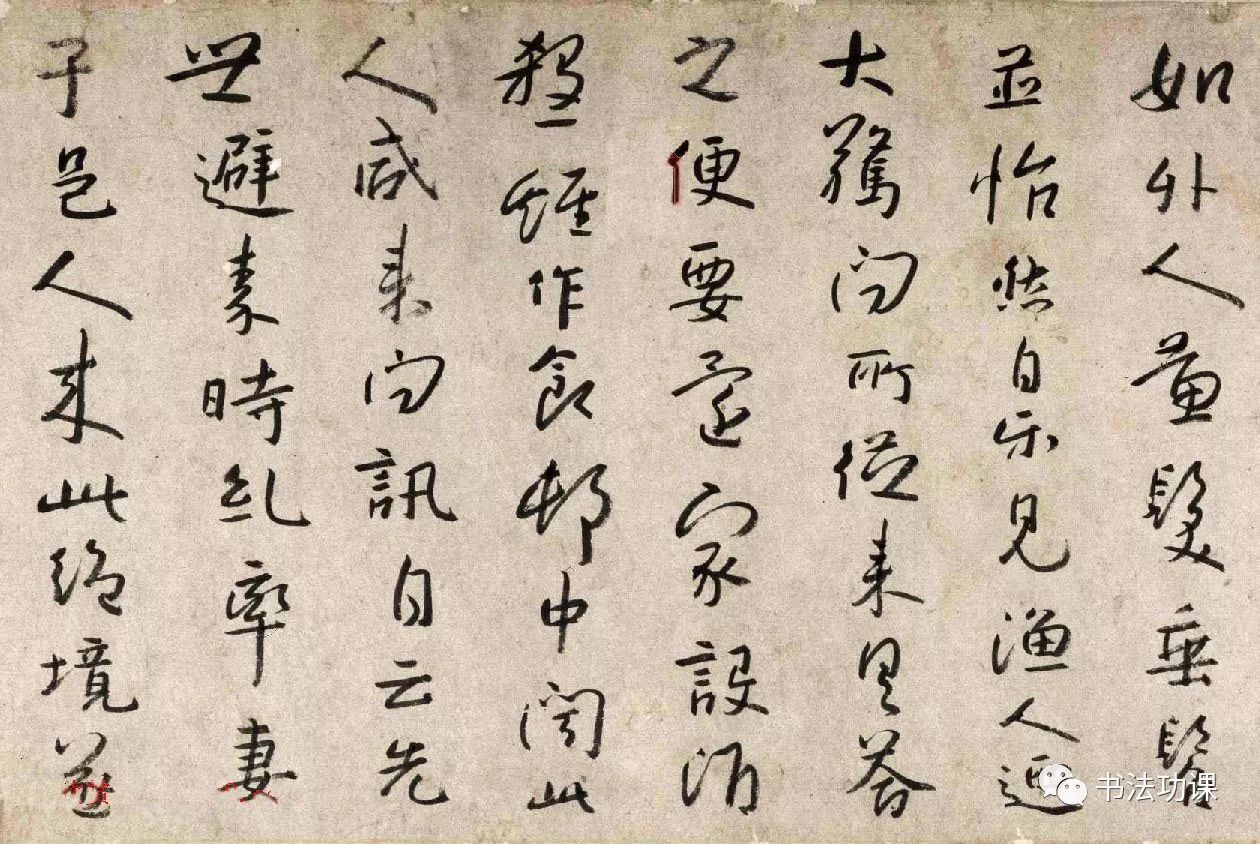 如外人黄髮垂髫
並怡然自乐見渔人迺
大驚问所從来具答
之便要還家設酒
殺一雞作食邨中闻此
人咸来问訊自云先
世避秦時乱率妻
子邑人来此绝境遂
书法功课